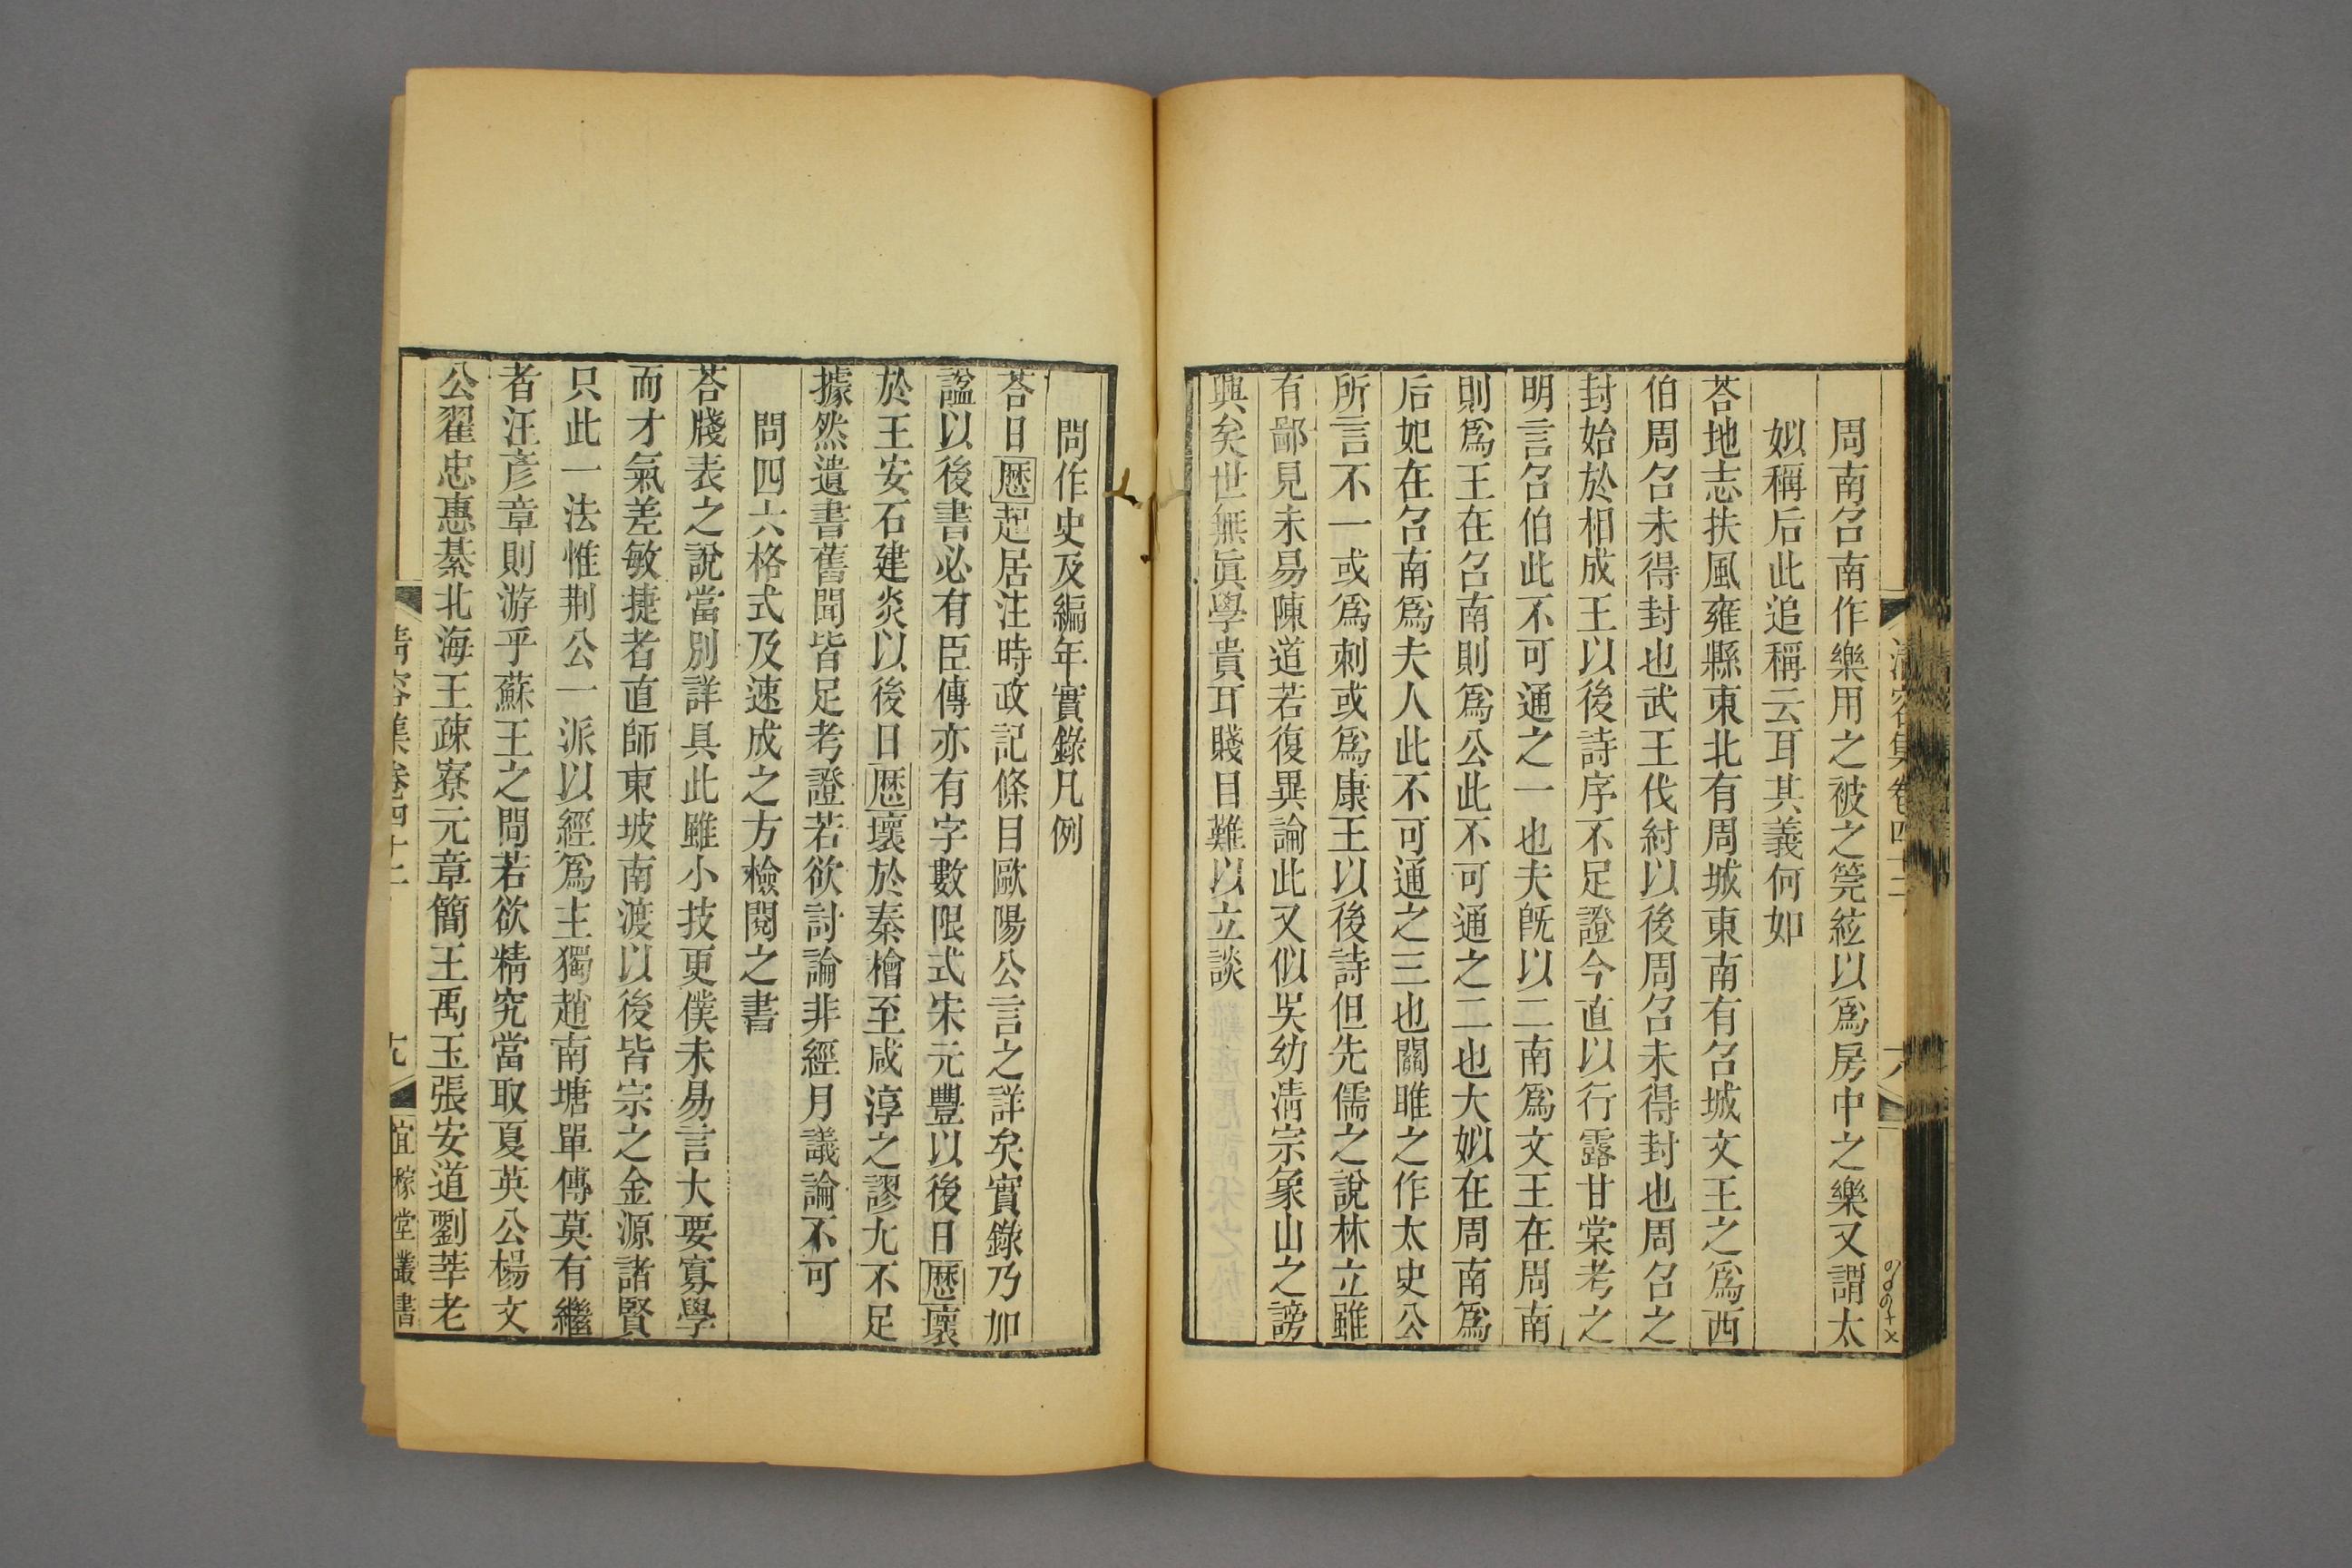 周南召南作樂用之被之筦絃以爲房中之樂又謂太
姒稱后此追稱云耳其義何如
荅地志扶風雍縣東北有周城東南有召城文王之爲西
伯周召未得封也武王伐紂以後周召未得封也周召之
封始於相成王以後詩序不足證今直以行露甘棠考之
明言召伯此不可通之一也夫旣以二南爲文王在周南
則爲王在召南則爲公此不可通之二也大姒在周南爲
后妃在召南爲夫人此不可通之三也關雎之作太史公
所言不一或爲刺或爲康王以後詩但先儒之說林立雖
有鄙見未易陳道若復異論此又似吳幼淸宗象山之謗
興矣世無眞學貴耳賤目難以立談
問作史及編年實錄凡例
荅日歷起居注時政記條目歐陽公言之詳矣實錄乃加
謚以後書必有臣傳亦有字數限式宋元豐以後日歷壞
於王安石建炎以後日歷壞於秦檜至咸淳之謬尤不足
據然遺書舊聞皆足考證若欲討論非經月議論不可
問四六格式及速成之方檢閱之書
荅牋表之說當別詳具此雖小技更僕未易言大要寡學
而才氣差敏捷者直師東坡南渡以後皆宗之金源諸賢
只此一法惟荆公一派以經爲主獨趙南塘單傳莫有繼
者汪彥章則游乎蘇王之間若欲精究當取夏英公楊文
公翟忠惠綦北海王疎寮元章簡王禹玉張安道劉莘老
清容集卷四十二
九
宜稼堂叢書